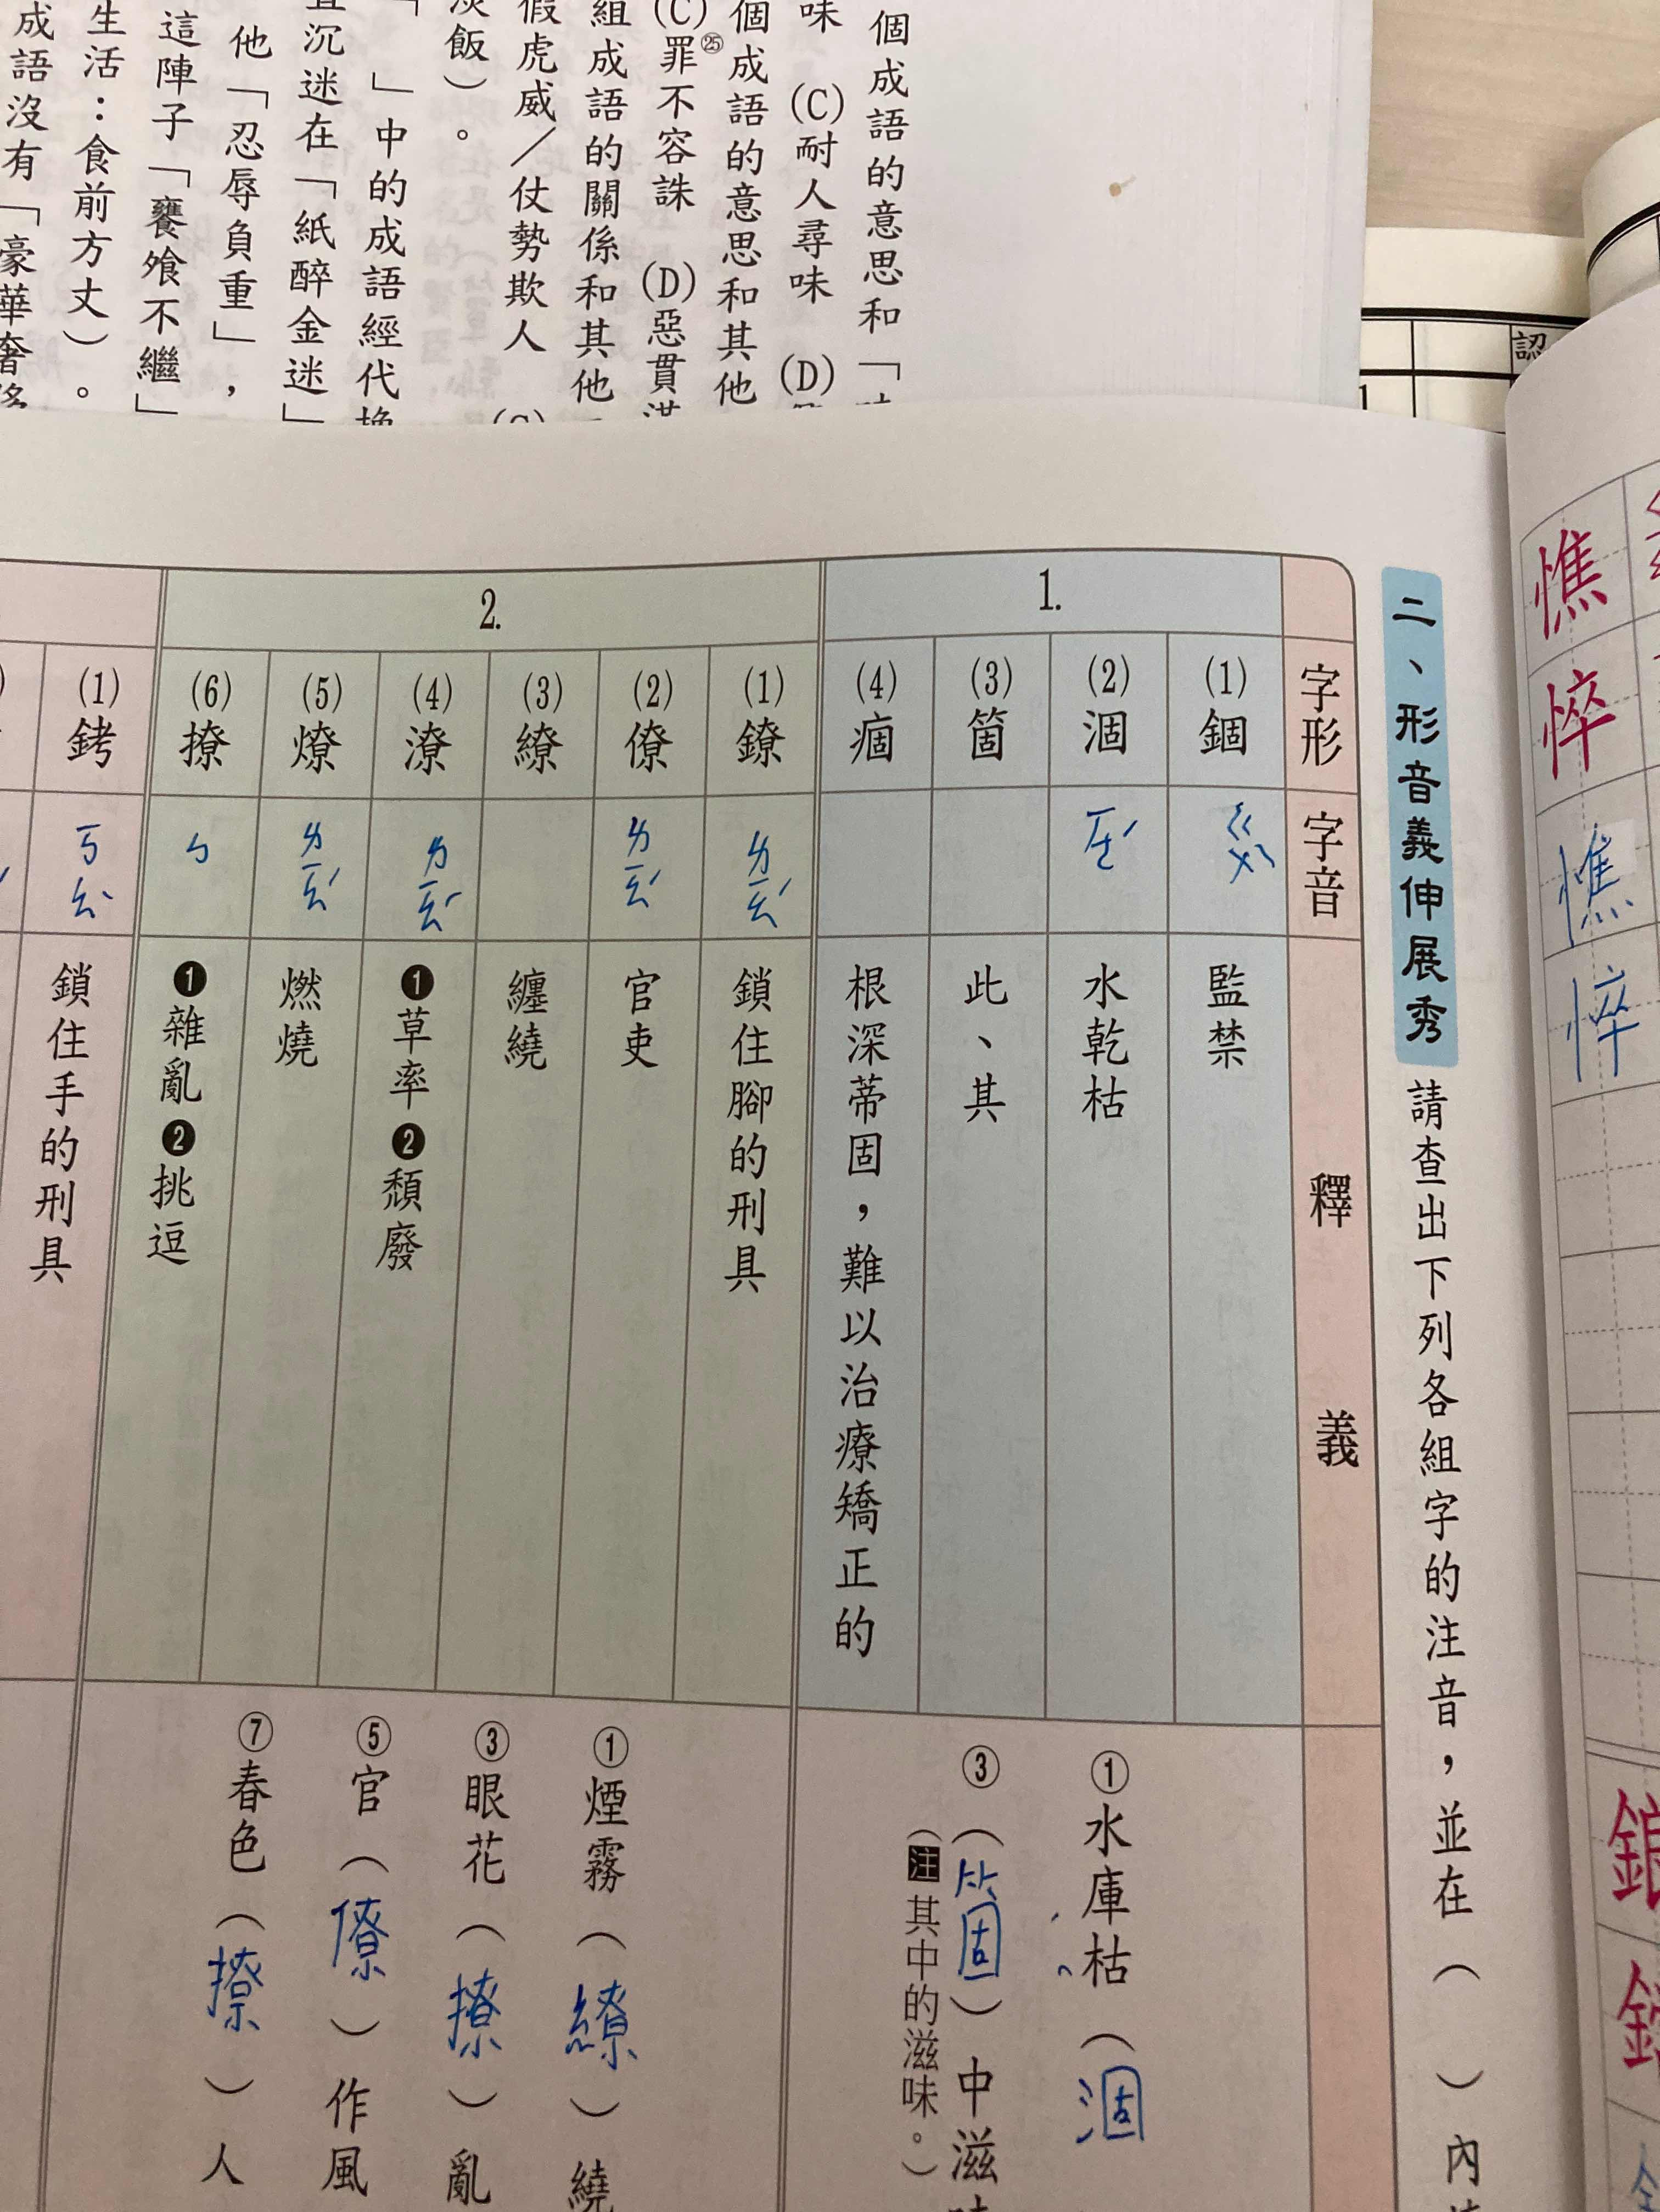 個成語的意思和「
味　(C)耐人尋味　(D)
個成語的意思和其他
(C)罪㉕不容誅　(D)惡貫滿
組成語的關係和其他一
假虎威／仗勢欺人
淡飯）。
「　」中的成語經代換
沉迷在「紙醉金迷」
他「忍辱負重」，
這陣子「饔飧不繼」
生活：食前方丈）。
成語沒有「豪華奢移
認
憔
悴
憔
悴
二、形音義伸展秀　請查出下列各組字的注音，並在（　）內
字形　字音　釋義
1.
(1)錮　ㄍㄨˋ　監禁
(2)涸　ㄏㄜˊ　水乾枯
(3)箇　此、其
(4)痼　根深蒂固，難以治療矯正的
①水庫枯（涸
③（箇）中滋味
（注其中的滋味。）
2.
(1)鐐　ㄌㄧㄠˊ　鎖住腳的刑具
(2)僚　ㄌㄧㄠˊ　官吏
(3)繚　纏繞
(4)潦　ㄌㄧㄠˊ　❶草率❷頹廢
(5)燎　ㄌㄧㄠˊ　燃燒
(6)撩　ㄅ　❶雜亂❷挑逗
①煙霧（繚）繞
③眼花（撩）亂
⑤官（僚）作風
⑦春色（撩）人
(1)銬　ㄎㄠˋ　鎖住手的刑具